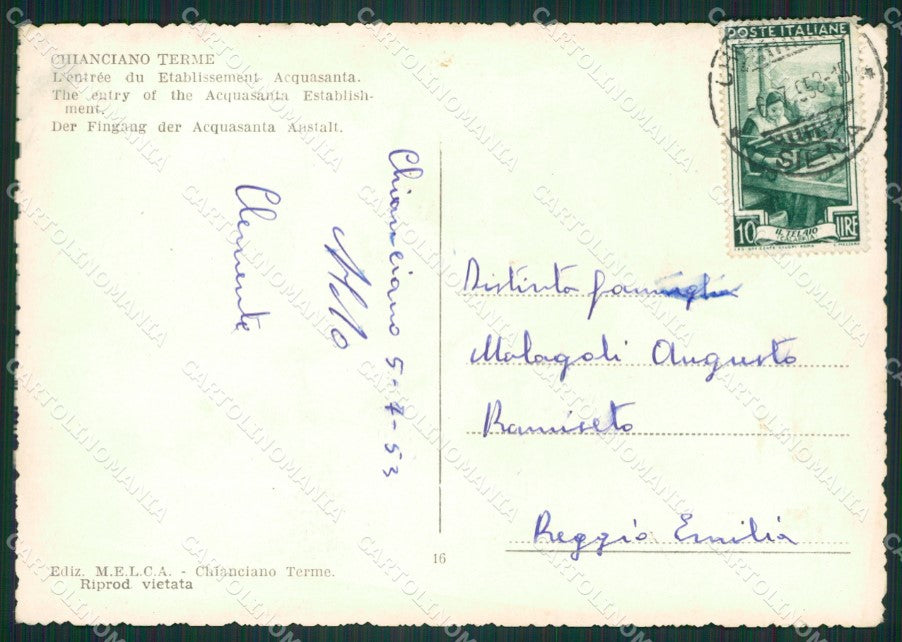 CHIANCIANO TERME
L'entrée du Etablissement Acquasanta.
The entry of the Acquasanta Establish-
ment.
Der Fingang der Acquasanta Anstalt.
POSTE ITALIANE
SIENA
10 IL TELAIO LIRE
CALABRIA
Chianciano 5-7-53
Clemente
Distinta famiglia
Malagoli Augusto
Ramiseto
Reggio Emilia
16
Ediz. M.E.L.C.A. - Chianciano Terme.
Riprod. vietata
CARTOLINOMANIA